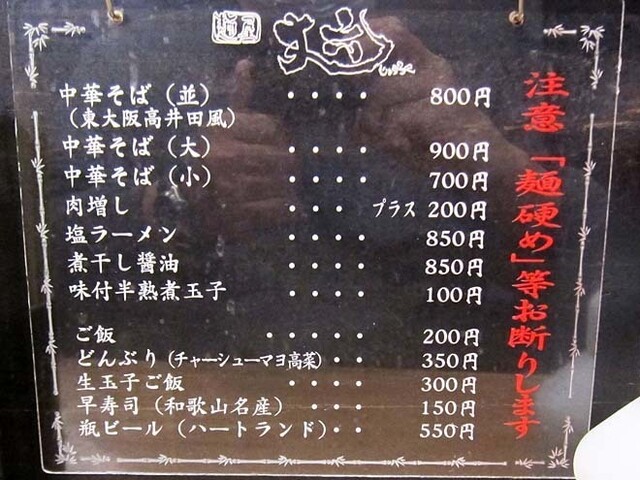 麺屋
中華そば（並）・・・・ 800円
（東大阪高井田風）
中華そば（大）・・・・ 900円
中華そば（小）・・・・ 700円
肉増し ・・・ プラス 200円
塩ラーメン ・・・・ 850円
煮干し醤油 ・・・・ 850円
味付半熟煮玉子 ・・・・ 100円
ご飯 ・・・・・ 200円
どんぶり（チャーシューマヨ高菜）・・ 350円
生玉子ご飯 ・・・・ 300円
早寿司（和歌山名産）・・・ 150円
瓶ビール（ハートランド）・・ 550円
注意「麺硬め」等お断りします